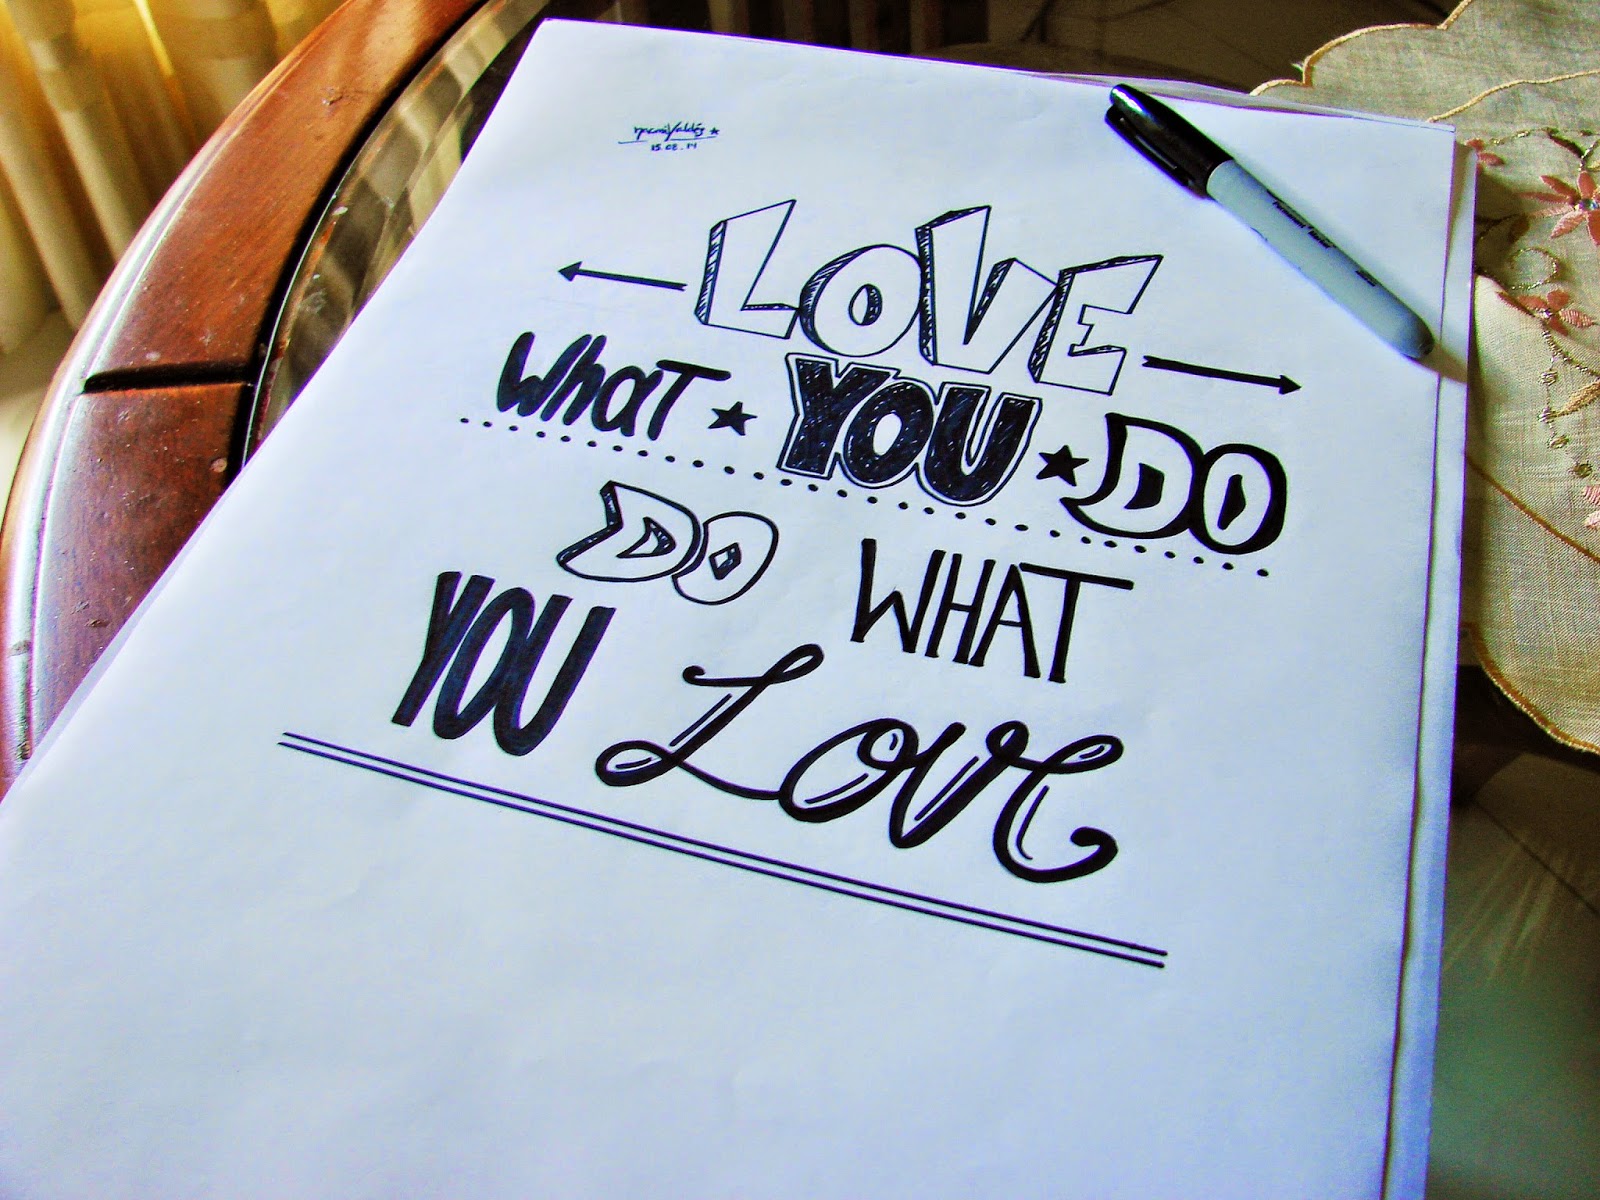 15.08.14
LOVE
What YOU DO
DO WHAT
YOU Love